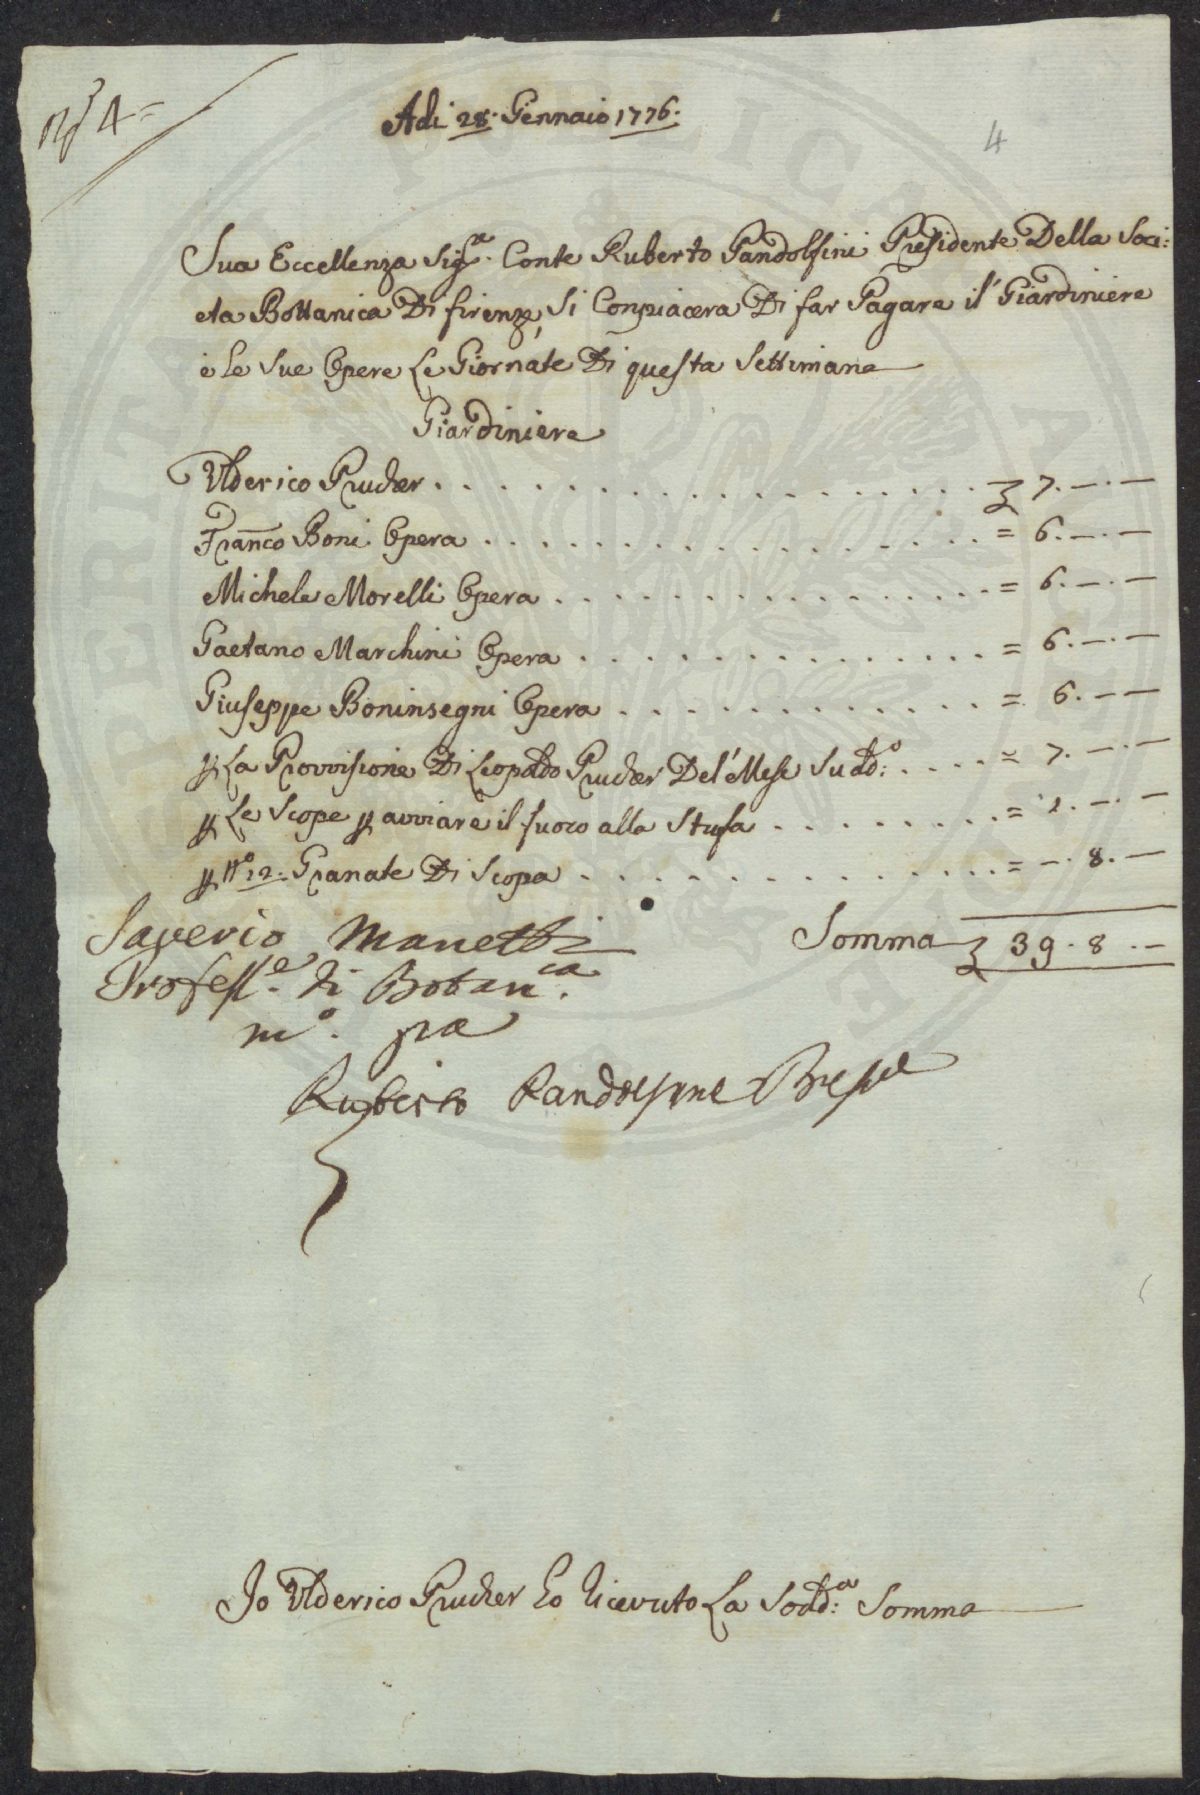 N.º 4=
Adi 28. Gennaio 1776.
4
Sua Eccellenza Sig.ᵉ Conte Ruberto Pandolfini Presidente Della Soci:
eta Bottanica Di firenze, Si Conpiacera Di far Pagare il' Giardiniere
e Le Sue Opere Le Giornate Di questa Settimana
Giardiniere
Ulderico Prucher . . . . . 7. — . —
Franco Boni Opera . . . . . = 6. — . —
Michele Morelli Opera . . . . . = 6. — . —
Gaetano Marchini Opera . . . . . = 6. — . —
Giuseppe Boninsegni Opera . . . . . = 6. — —
P La Provvisione Di Leopoldo Prucher Del' Mese Sudd:º . . . . = 7. — . —
P Le Scope P avviare il fuoco alla Stufa . . . . . = 1. — . —
P Nº 12. Granate Di Scopa . . . . . = — . 8. —
Somma 39. 8. —
Saverio Manetti
Profess.ᵉ di Botan.ᶜᵃ
m.º pa
Ruberto Pandolfini Presᵉ
Io Ulderico Prucher ho Ricevuto La Sodd:ᵃ Somma